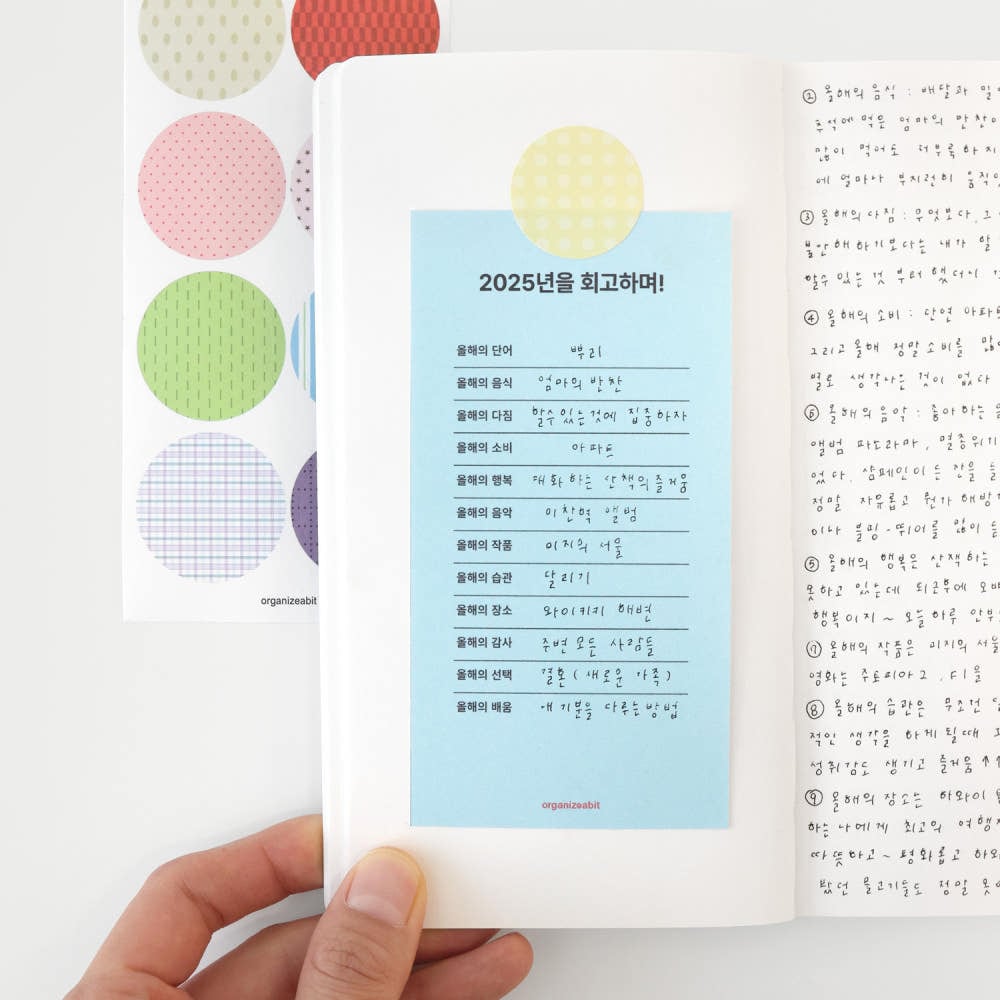 organizeabit
2025년을 회고하며!
올해의 단어 뿌리
올해의 음식 엄마의 반찬
올해의 다짐 할수있는것에 집중하자
올해의 소비 아파트
올해의 행복 대화하는 산책의즐거움
올해의 음악 이찬혁 앨범
올해의 작품 미지의 서울
올해의 습관 달리기
올해의 장소 와이키키 해변
올해의 감사 주변 모든 사람들
올해의 선택 결혼 (새로운 가족)
올해의 배움 내 기분을 다루는 방법
organizeabit
② 올해의 음식 : 배달과
추억에 먹은 엄마의 반찬이
많이 먹어도 더부룩하지
에 얼마나 부지런히
③ 올해의 다짐 : 무엇보다,
불안해하기보다는 내가 할
할수 있는 것 부터 했더니
④ 올해의 소비 : 단연 아파트
그리고 올해 정말 소비를
별로 생각나는 것이 없다
⑥ 올해의 음악 : 좋아하는
앨범 파노라마, 멸종위기
었다. 샴페인이 든 잔을
정말 자유롭고 뭔가 해방
이나 볼핑-뛰어를 많이
⑤ 올해의 행복은 산책하는
못하고 있는데 퇴근후에
행복이지~ 오늘하루 안부
⑦ 올해의 작품은 미지의 서울
영화는 주토피아2, F1을
⑧ 올해의 습관은 무조건
적인 생각을 하게될때
성취감도 생기고 즐거움↑↑
⑨ 올해의 장소는 하와이
하는 나에게 최고의 여행
따뜻하고~ 평화롭고
봤던 물고기들도 정말